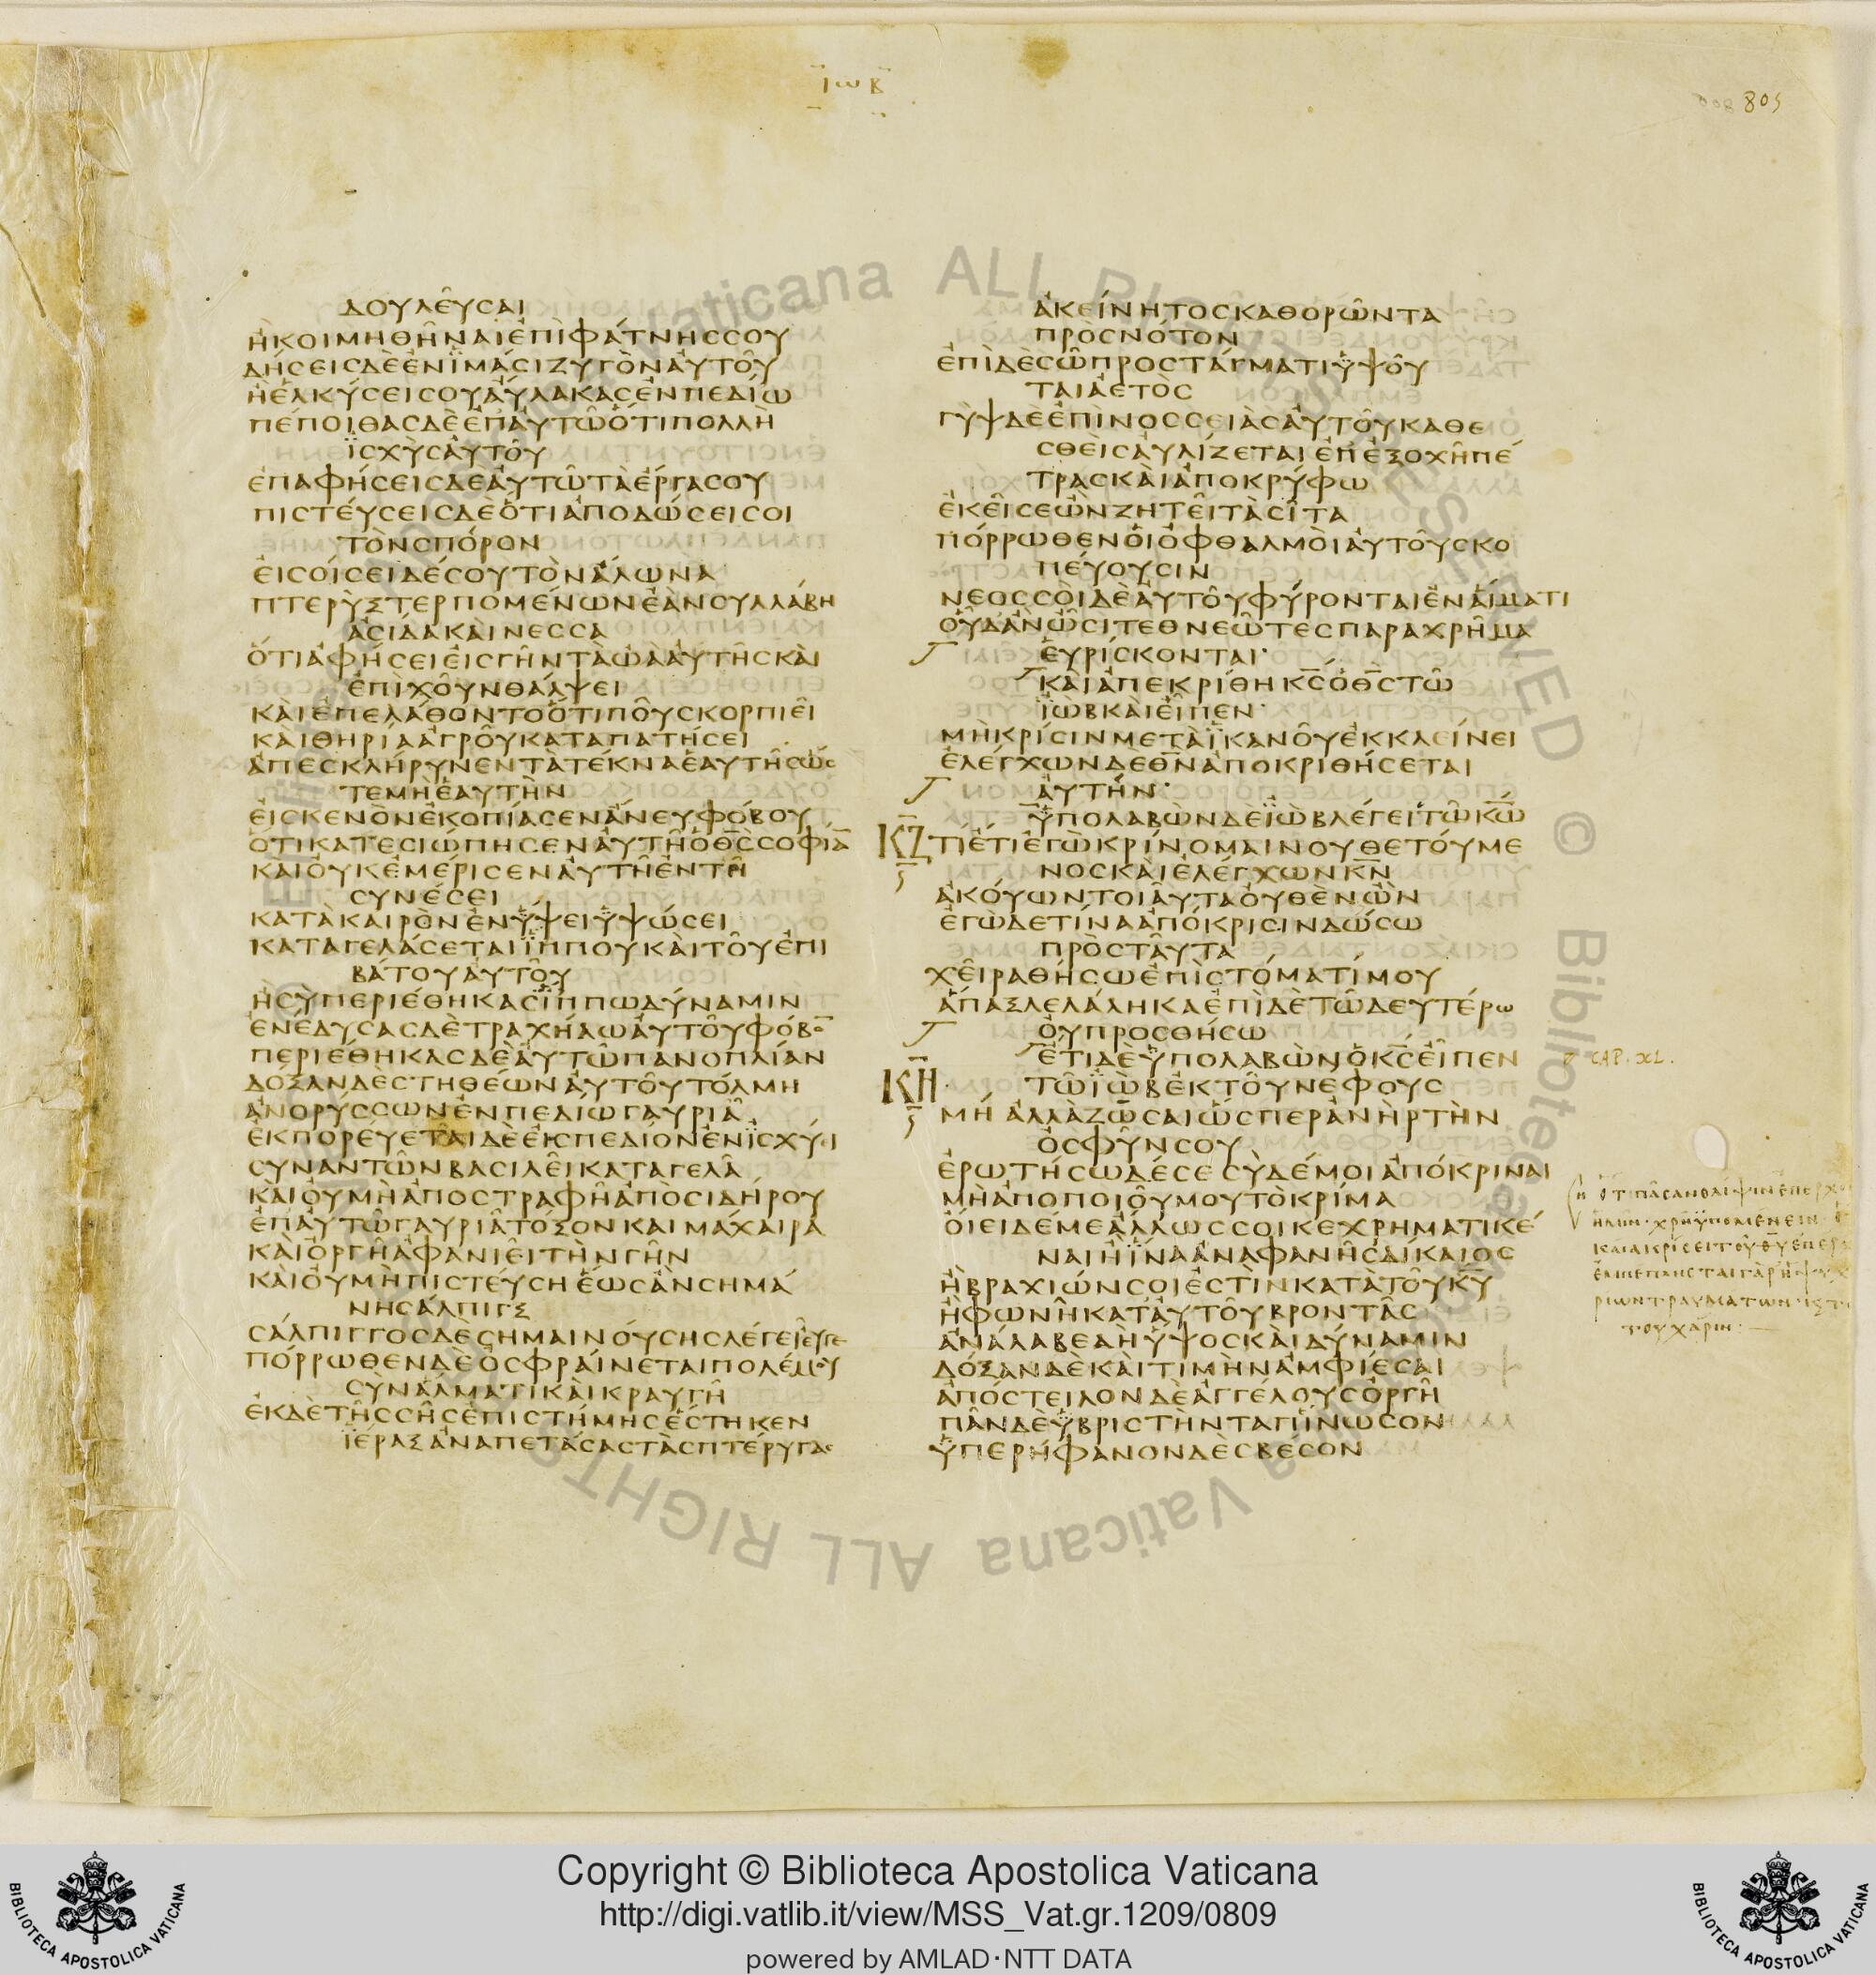 ΙΩΒ
805
ΔΟΥΛΕΥΣΑΙ
ΗΚΟΙΜΗΘΗΝΑΙΕΠΙΦΑΤΝΗΣΣΟΥ
ΔΗΣΕΙΣΔΕΕΝΪΜΑΣΙΖΥΓΟΝΑΥΤΟΥ
ΗΕΛΚΥΣΕΙΣΟΥΑΥΛΑΚΑΣΕΝΠΕΔΙΩ
ΠΕΠΟΙΘΑΣΔΕΕΠΑΥΤΩΟΤΙΠΟΛΛΗ
ΪΣΧΥΣΑΥΤΟΥ
ΕΠΑΦΗΣΕΙΣΔΕΑΥΤΩΤΑΕΡΓΑΣΟΥ
ΠΙΣΤΕΥΣΕΙΣΔΕΟΤΙΑΠΟΔΩΣΕΙΣΟΙ
ΤΟΝΣΠΟΡΟΝ
ΕΙΣΟΙΣΕΙΔΕΣΟΥΤΟΝΑΛΩΝΑ
ΠΤΕΡΥΞΤΕΡΠΟΜΕΝΩΝΕΑΝΣΥΛΛΑΒΗ
ΑΣΙΔΑΚΑΙΝΕΣΣΑ
ΟΤΙΑΦΗΣΕΙΕΙΣΓΗΝΤΑΩΑΑΥΤΗΣΚΑΙ
ΕΠΙΧΟΥΝΘΑΛΨΕΙ
ΚΑΙΕΠΕΛΑΘΟΝΤΟΟΤΙΠΟΥΣΚΟΡΠΙΕΙ
ΚΑΙΘΗΡΙΑΑΓΡΟΥΚΑΤΑΠΑΤΗΣΕΙ
ΑΠΕΣΚΛΗΡΥΝΕΝΤΑΤΕΚΝΑΕΑΥΤΗΣΩΣ
ΤΕΜΗΕΑΥΤΗΝ
ΕΙΣΚΕΝΟΝΕΚΟΠΙΑΣΕΝΑΝΕΥΦΟΒΟΥ
ΟΤΙΚΑΤΕΣΙΩΠΗΣΕΝΑΥΤΗΟΘΣΣΟΦΙΑ̅
ΚΑΙΟΥΚΕΜΕΡΙΣΕΝΑΥΤΗΕΝΤΗ
ΣΥΝΕΣΕΙ
ΚΑΤΑΚΑΙΡΟΝΕΝΫΨΕΙΫΨΩΣΕΙ
ΚΑΤΑΓΕΛΑΣΕΤΑΙΪΠΠΟΥΚΑΙΤΟΥΕΠΙ
ΒΑΤΟΥΑΥΤΟΥ
ΗΣΥΠΕΡΙΕΘΗΚΑΣΪΠΠΩΔΥΝΑΜΙΝ
ΕΝΕΔΥΣΑΣΔΕΤΡΑΧΗΛΩΑΥΤΟΥΦΟΒΟ̅
ΠΕΡΙΕΘΗΚΑΣΔΕΑΥΤΩΠΑΝΟΠΛΙΑΝ
ΔΟΞΑΝΔΕΣΤΗΘΕΩΝΑΥΤΟΥΤΟΛΜΗ
ΑΝΟΡΥΣΣΩΝΕΝΠΕΔΙΩΓΑΥΡΙΑ
ΕΚΠΟΡΕΥΕΤΑΙΔΕΕΙΣΠΕΔΙΟΝΕΝΪΣΧΥΙ
ΣΥΝΑΝΤΩΝΒΑΣΙΛΕΙΚΑΤΑΓΕΛΑ
ΚΑΙΟΥΜΗΑΠΟΣΤΡΑΦΗΑΠΟΣΙΔΗΡΟΥ
ΕΠΑΥΤΩΓΑΥΡΙΑΤΟΞΟΝΚΑΙΜΑΧΑΙΡΑ
ΚΑΙΟΡΓΗΑΦΑΝΙΕΙΤΗΝΓΗΝ
ΚΑΙΟΥΜΗΠΙΣΤΕΥΣΗΕΩΣΑΝΣΗΜΑ
ΝΗΣΑΛΠΙΓΞ
ΣΑΛΠΙΓΓΟΣΔΕΣΗΜΑΙΝΟΥΣΗΣΛΕΓΕΙΕΥΓΕ
ΠΟΡΡΩΘΕΝΔΕΟΣΦΡΑΙΝΕΤΑΙΠΟΛΕΜΟΥ
ΣΥΝΑΛΜΑΤΙΚΑΙΚΡΑΥΓΗ
ΕΚΔΕΤΗΣΣΗΣΕΠΙΣΤΗΜΗΣΕΣΤΗΚΕΝ
ΪΕΡΑΞΑΝΑΠΕΤΑΣΑΣΤΑΣΠΤΕΡΥΓΑΣ
ΑΚΕΙΝΗΤΟΣΚΑΘΟΡΩΝΤΑ
ΠΡΟΣΝΟΤΟΝ
ΕΠΙΔΕΣΩΠΡΟΣΤΑΓΜΑΤΙΫΨΟΥ
ΤΑΙΑΕΤΟΣ
ΓΥΨΔΕΕΠΙΝΟΣΣΕΙΑΣΑΥΤΟΥΚΑΘΕ
ΣΘΕΙΣΑΥΛΙΖΕΤΑΙΕΠΕΞΟΧΗΠΕ
ΤΡΑΣΚΑΙΑΠΟΚΡΥΦΩ
ΕΚΕΙΣΕΩΝΖΗΤΕΙΤΑΣΙΤΑ
ΠΟΡΡΩΘΕΝΟΙΟΦΘΑΛΜΟΙΑΥΤΟΥΣΚΟ
ΠΕΥΟΥΣΙΝ
ΝΕΟΣΣΟΙΔΕΑΥΤΟΥΦΥΡΟΝΤΑΙΕΝΑΙΜΑΤΙ
ΟΥΔΑΝΩΣΙΤΕΘΝΕΩΤΕΣΠΑΡΑΧΡΗΜΑ
ΕΥΡΙΣΚΟΝΤΑΙ·
ΚΑΙΑΠΕΚΡΙΘΗΚ̅Σ̅ΟΘ̅Σ̅ΤΩ
ΪΩΒΚΑΙΕΙΠΕΝ·
ΜΗΚΡΙΣΙΝΜΕΤΑΪΚΑΝΟΥΕΚΚΛΕΙΝΕΙ
ΕΛΕΓΧΩΝΔΕΘ̅Ν̅ΑΠΟΚΡΙΘΗΣΕΤΑΙ
ΑΥΤΗΝ·
ΫΠΟΛΑΒΩΝΔΕΪΩΒΛΕΓΕΙΤΩΚ̅Ω̅
ΚΖ ΤΙΕΤΙΕΓΩΚΡΙΝΟΜΑΙΝΟΥΘΕΤΟΥΜΕ
ΝΟΣΚΑΙΕΛΕΓΧΩΝΚ̅Ν̅
ΑΚΟΥΩΝΤΟΙΑΥΤΑΟΥΘΕΝΩΝ
ΕΓΩΔΕΤΙΝΑΑΠΟΚΡΙΣΙΝΔΩΣΩ
ΠΡΟΣΤΑΥΤΑ
ΧΕΙΡΑΘΗΣΩΕΠΙΣΤΟΜΑΤΙΜΟΥ
ΑΠΑΞΛΕΛΑΛΗΚΑΕΠΙΔΕΤΩΔΕΥΤΕΡΩ
ΟΥΠΡΟΣΘΗΣΩ
ΕΤΙΔΕΫΠΟΛΑΒΩΝΟΚ̅Σ̅ΕΙΠΕΝ
CAP. XL.
ΚΗ ΤΩΪΩΒΕΚΤΟΥΝΕΦΟΥΣ
ΜΗ ΑΛΛΑΖΩΣΑΙΩΣΠΕΡΑΝΗΡΤΗΝ
ΟΣΦΥΝΣΟΥ
ΕΡΩΤΗΣΩΔΕΣΕΣΥΔΕΜΟΙΑΠΟΚΡΙΝΑΙ
ΜΗΑΠΟΠΟΙΟΥΜΟΥΤΟΚΡΙΜΑ
ΟΙΕΙΔΕΜΕΑΛΛΩΣΣΟΙΚΕΧΡΗΜΑΤΙΚΕ
ΝΑΙΗΪΝΑΑΝΑΦΑΝΗΣΔΙΚΑΙΟΣ
ΗΒΡΑΧΙΩΝΣΟΙΕΣΤΙΝΚΑΤΑΤΟΥΚ̅Υ̅
ΗΦΩΝΗΚΑΤΑΥΤΟΥΒΡΟΝΤΑΣ
ΑΝΑΛΑΒΕΔΗΫΨΟΣΚΑΙΔΥΝΑΜΙΝ
ΔΟΞΑΝΔΕΚΑΙΤΙΜΗΝΑΜΦΙΕΣΑΙ
ΑΠΟΣΤΕΙΛΟΝΔΕΑΓΓΕΛΟΥΣΟΡΓΗ
ΠΑΝΔΕΫΒΡΙΣΤΗΝΤΑΠΙΝΩΣΟΝ
ΫΠΕΡΗΦΑΝΟΝΔΕΣΒΕΣΟΝ
Copyright © Biblioteca Apostolica Vaticana
http://digi.vatlib.it/view/MSS_Vat.gr.1209/0809
powered by AMLAD·NTT DATA
BIBLIOTECA APOSTOLICA VATICANA
BIBLIOTECA APOSTOLICA VATICANA